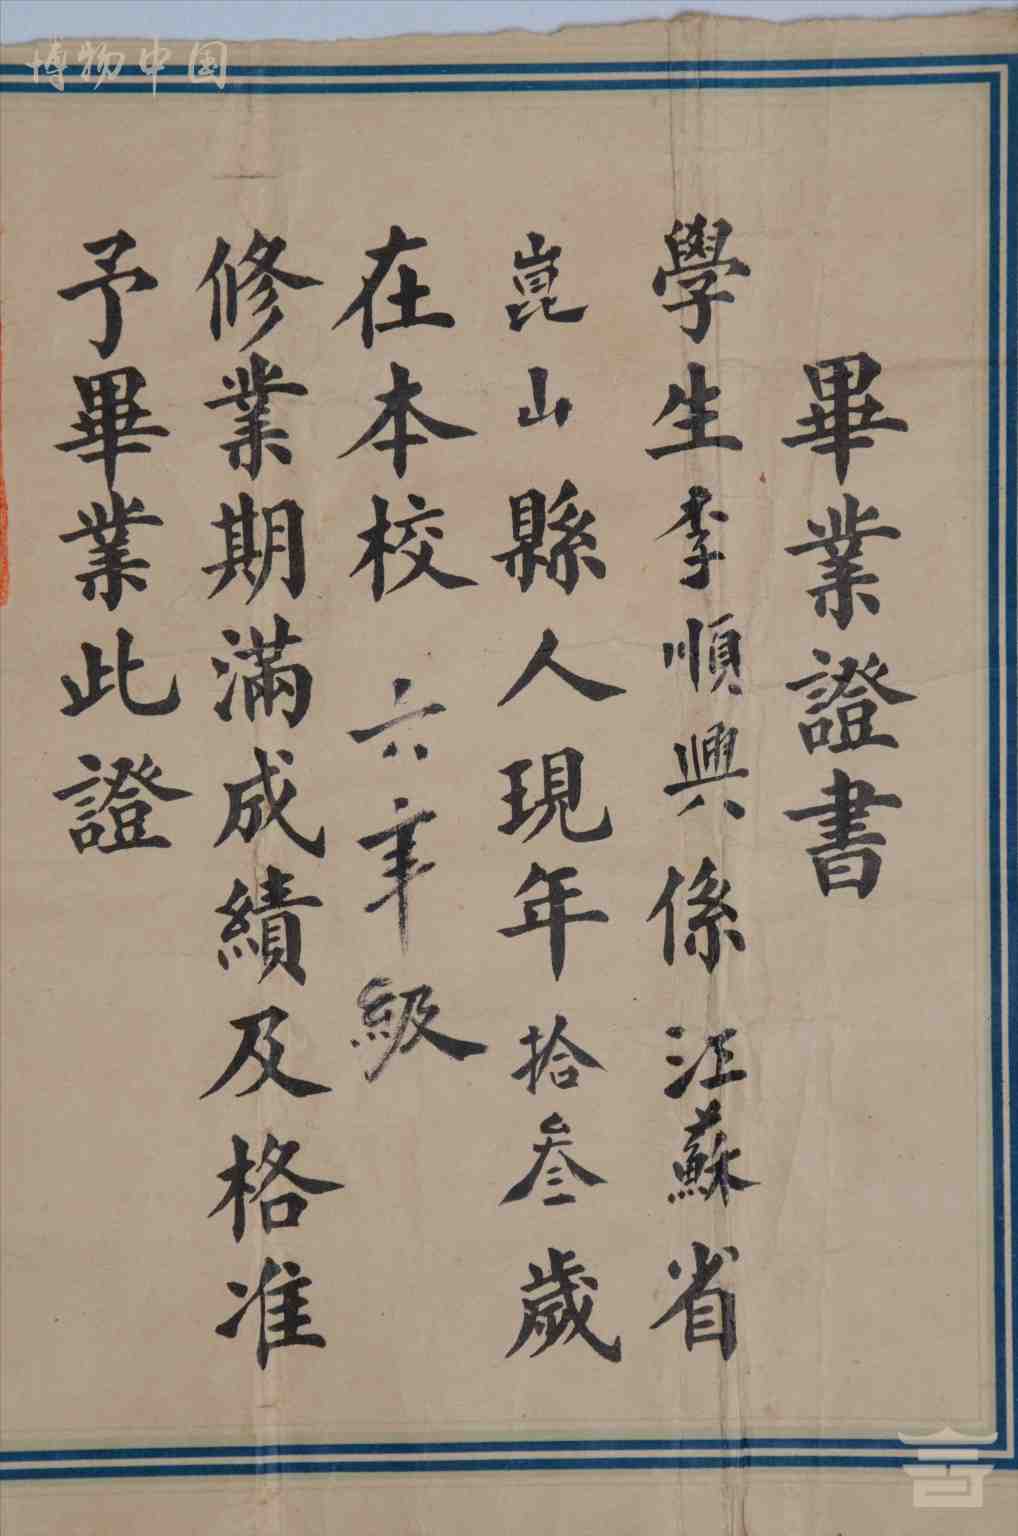 畢業證書
學生李順興係江蘇省
崑山縣人現年拾叁歲
在本校六年級
修業期滿成績及格准
予畢業此證
博物中国